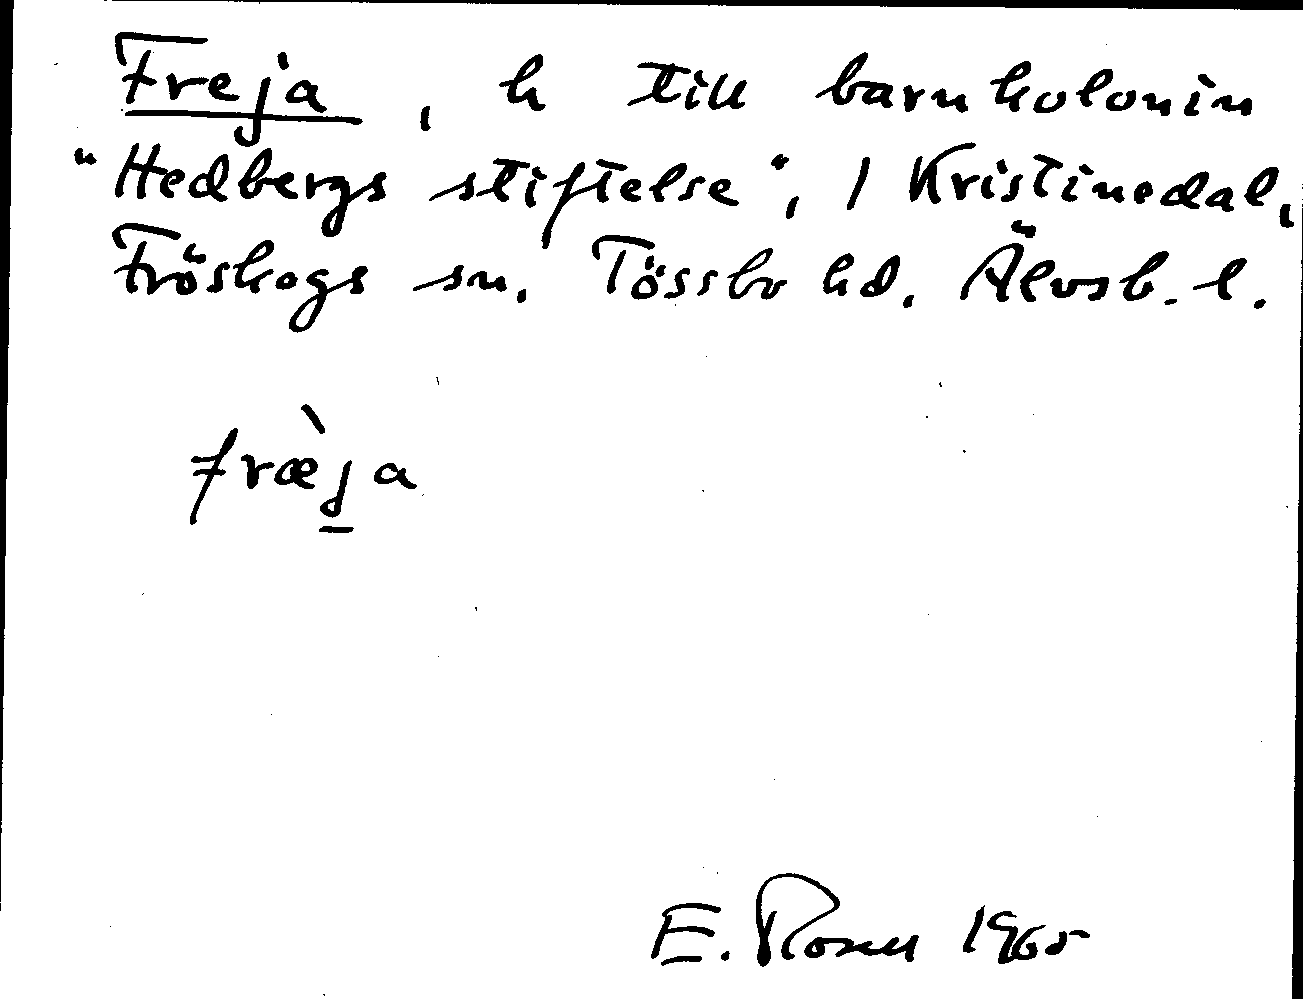 Freja, h till barnkolonin
"Hedbergs stiftelse", 1 Kristinedal,
Fröskogs sn. Tössbo hd. Älvsb. l.
fræ̀ja
E. Rosen 1965